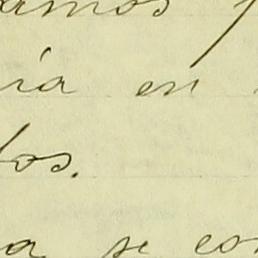 amos
ía en
tos.
a se con